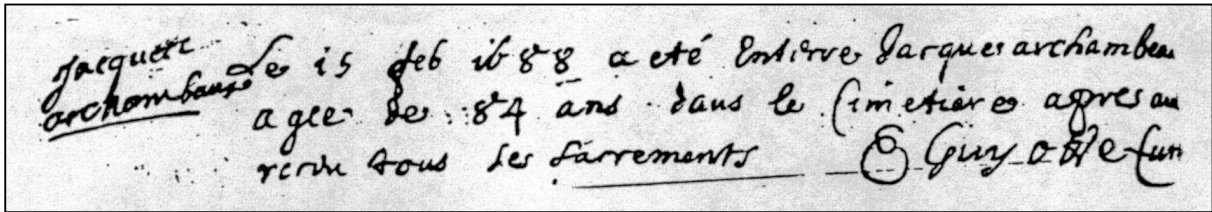 Jacques
archambaux
Le 15 feb 1688 a eté Enterre Jacques archambeau
agee de 84 ans dans le Cimetiere apres au
receu tous les sacrements Guyotte Cur